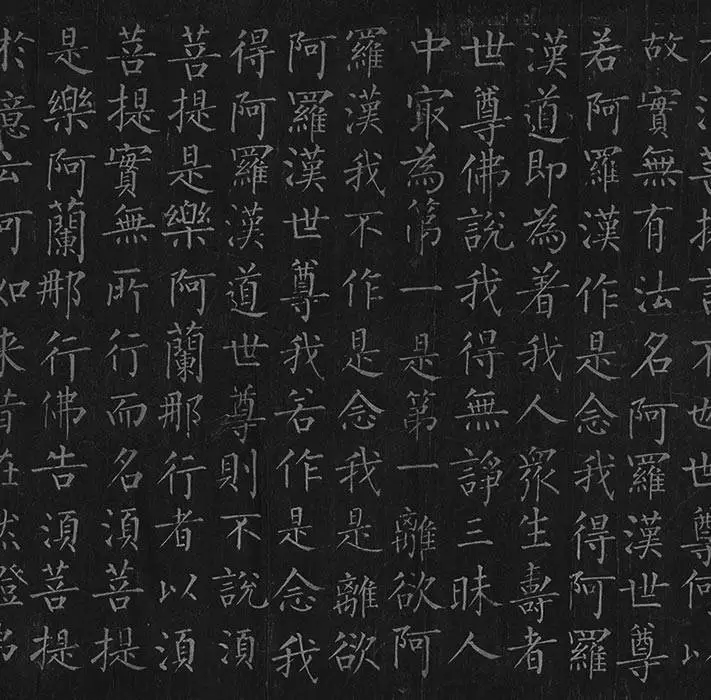 菩提言不也世尊何以
故實無有法名阿羅漢世尊
若阿羅漢作是念我得阿羅
漢道即為著我人眾生壽者
世尊佛說我得無諍三昧人
中冣為第一是第一離欲阿
羅漢我不作是念我是離欲
阿羅漢世尊我若作是念我
得阿羅漢道世尊則不說須
菩提是樂阿蘭那行者以須
菩提實無所行而名須菩提
是樂阿蘭那行佛告須菩提
於意云何如來昔在然燈